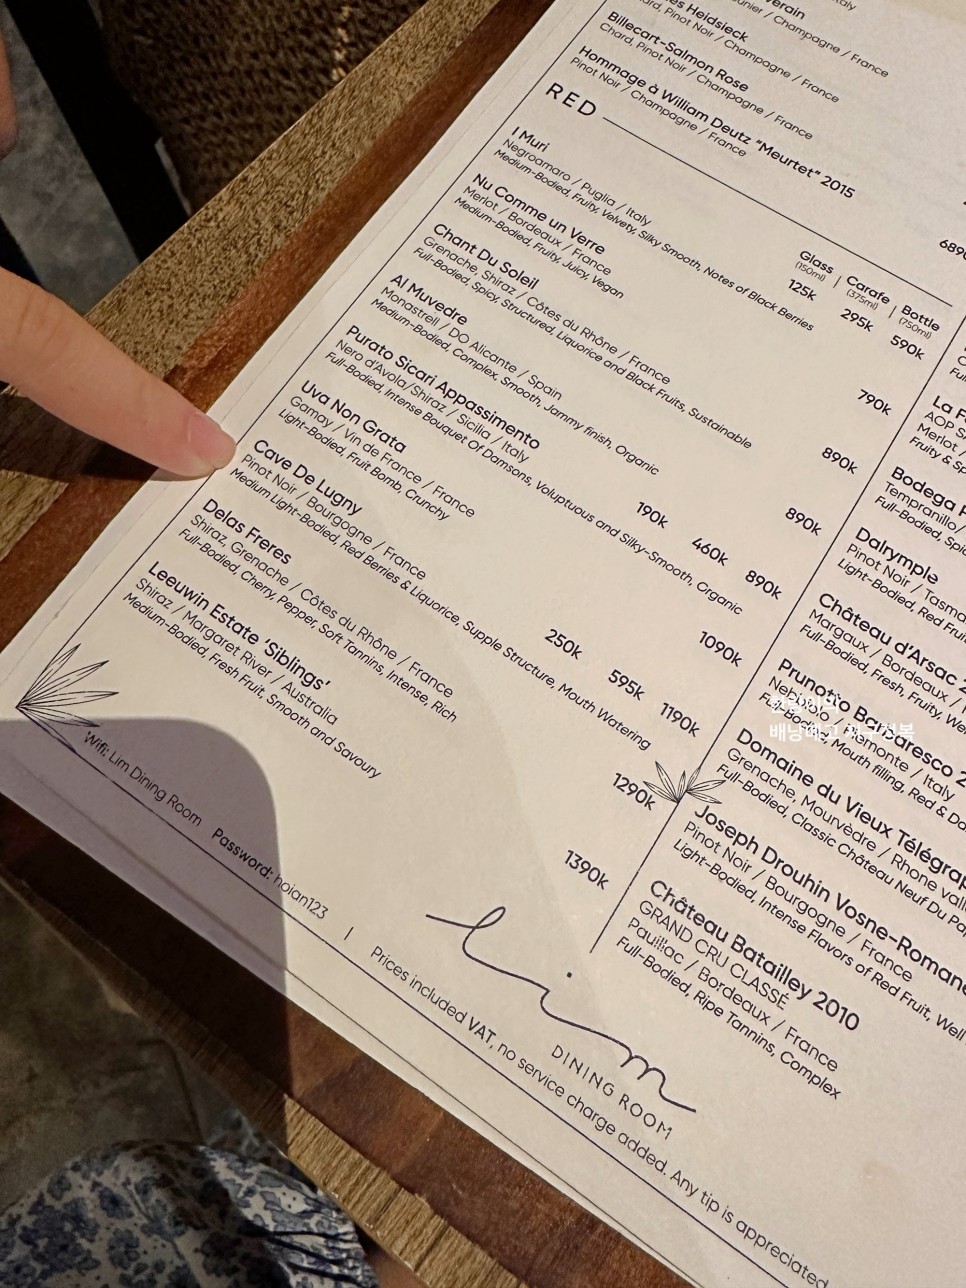 verain
Italy
unier / Champagne / France
es Heidsieck
Chard, Pinot Noir / Champagne / France
Billecart-Salmon Rose
Chard, Pinot Noir / Champagne / France
Hommage à William Deutz "Meurtet" 2015
Pinot Noir / Champagne / France
RED
Glass | Carafe | Bottle
(150ml) (375ml) (750ml)
I Muri
125k 295k 590k
Negroamaro / Puglia / Italy
Medium-Bodied, Fruity, Velvety, Silky Smooth, Notes of Black Berries
Nu Comme un Verre
790k
Merlot / Bordeaux / France
Medium-Bodied, Fruity, Juicy, Vegan
Chant Du Soleil
890k
Grenache, Shiraz / Côtes du Rhône / France
Full-Bodied, Spicy, Structured, Liquorice and Black Fruits, Sustainable
Al Muvedre
890k
Monastrell / DO Alicante / Spain
Medium-Bodied, Complex, Smooth, Jammy finish, Organic
Purato Sicari Appassimento
190k 460k 890k
Nero d'Avola/Shiraz / Sicilia / Italy
Full-Bodied, Intense Bouquet Of Damsons, Voluptuous and Silky-Smooth, Organic
Uva Non Grata
1090k
Gamay / Vin de France / France
Light-Bodied, Fruit Bomb, Crunchy
Cave De Lugny
250k 595k 1190k
Pinot Noir / Bourgogne / France
Medium Light-Bodied, Red Berries & Liquorice, Supple Structure, Mouth Watering
Delas Freres
1290k
Shiraz, Grenache / Côtes du Rhône / France
Full-Bodied, Cherry, Pepper, Soft Tannins, Intense, Rich
Leeuwin Estate 'Siblings'
1390k
Shiraz / Margaret River / Australia
Medium-Bodied, Fresh Fruit, Smooth and Savoury
La
AOP
Merlot /
Fruity & Sp
Bodega
Tempranillo/
Full-Bodied, Spic
Dalrymple
Pinot Noir / Tasma
Light-Bodied, Red Frui
Château d'Arsac 2
Margaux / Bordeaux /
Full-Bodied, Fresh, Fruity, We
Prunotto Barbaresco 2
Nebbiolo / Piemonte / Italy
Full-Bodied, Mouth filling, Red & Da
배낭메고 지구정복
Domaine du Vieux Télégrap
Grenache, Mourvèdre / Rhone vall
Full-Bodied, Classic Château Neuf Du Pa
Joseph Drouhin Vosne-Romane
Pinot Noir / Bourgogne / France
Light-Bodied, Intense Flavors of Red Fruit, Well
Château Batailley 2010
GRAND CRU CLASSÉ
Pauillac / Bordeaux / France
Full-Bodied, Ripe Tannins, Complex
lim
DINING ROOM
Wifi: Lim Dining Room Password: hoian123 | Prices included VAT, no service charge added. Any tip is appreciated